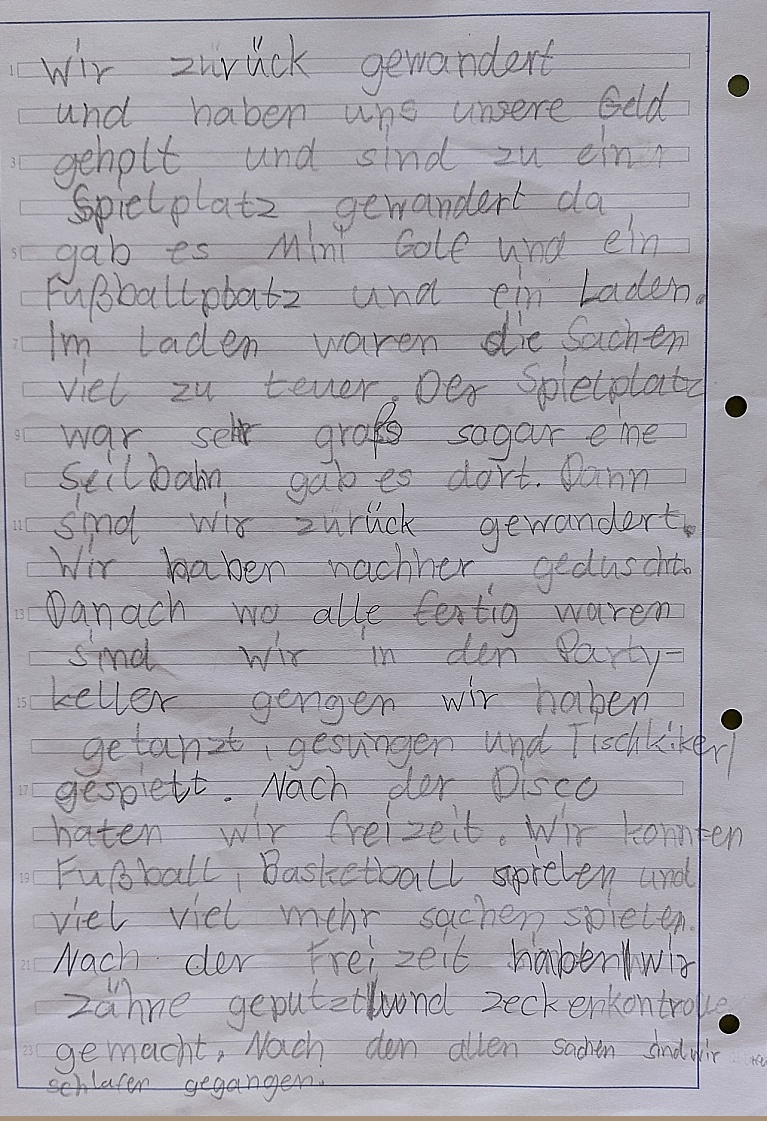 Wir zurück gewandert
und haben uns unsere Geld
geholt und sind zu ein
Spielplatz gewandert da
gab es Mini Golf und ein
Fußballplatz und ein Laden.
Im Laden waren die Sachen
viel zu teuer. Der Spielplatz
war sehr groß sogar eine
Seilbahn gab es dort. Dann
sind wir zurück gewandert.
Wir haben nachher geduscht.
Danach wo alle fertig waren
sind wir in den Party-
keller gengen wir haben
getanzt, gesungen und Tischkiker
gespielt. Nach der Disco
haten wir freizeit. Wir konnten
Fußball, Basketball spielen und
viel viel mehr sachen spielen.
Nach der Freizeit haben wir
zähne geputzt und zeckenkontrolle
gemacht. Nach den allen sachen sind wir
schlafen gegangen.